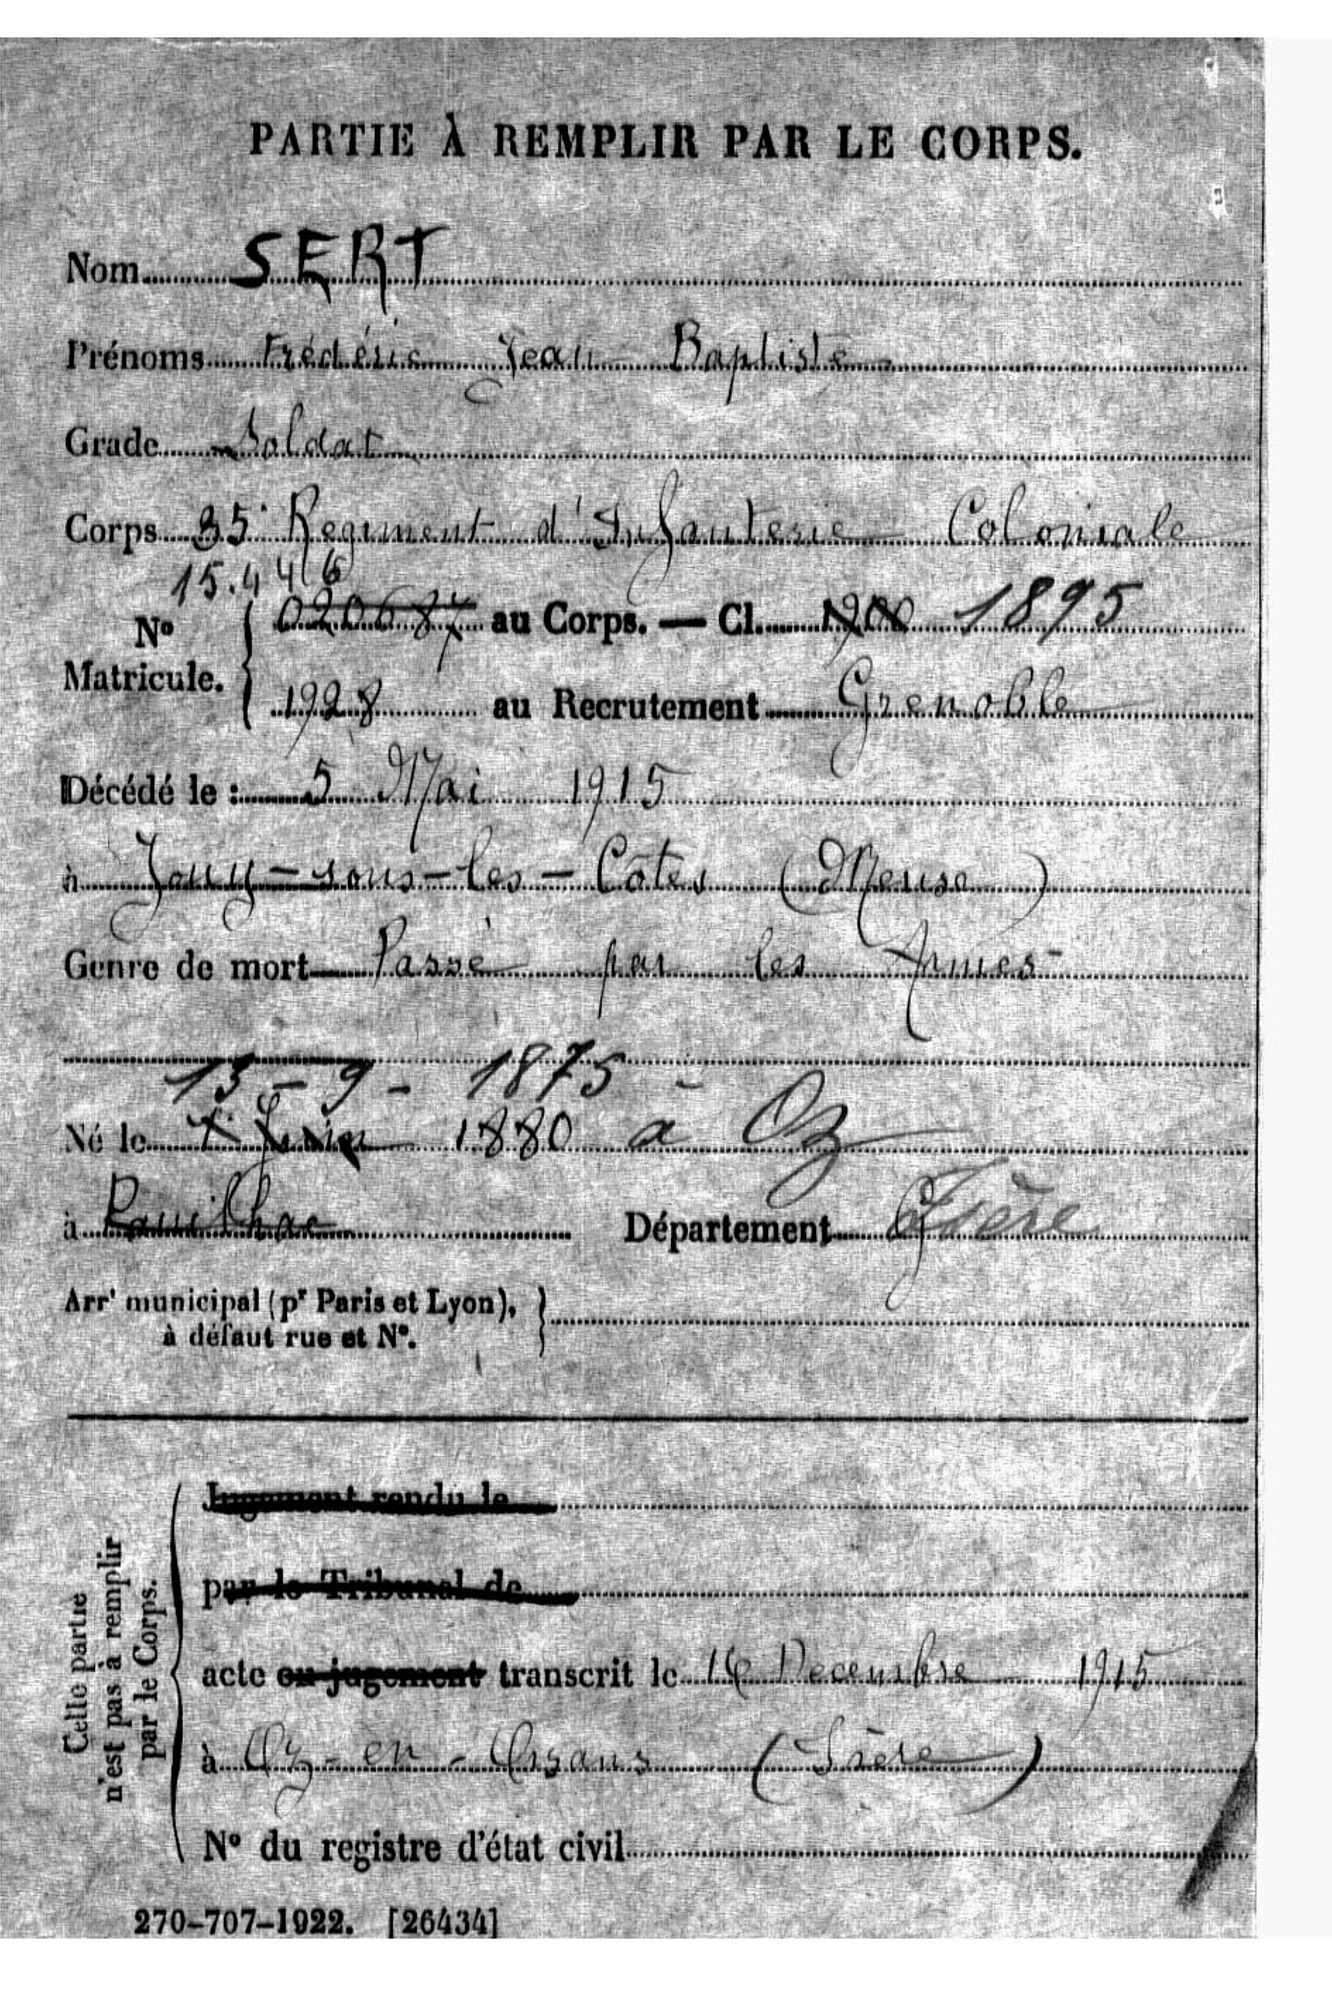 PARTIE À REMPLIR PAR LE CORPS.
Nom SERT
Prénoms Frédéric Jean Baptiste
Grade Soldat
Corps 35e Régiment d'Infanterie Coloniale
15.446
N° Matricule. 020687 au Corps. — Cl. 1900 1895
1928 au Recrutement Grenoble
Décédé le : 5 Mai 1915
à Jouy-sous-les-Côtes (Meuse)
Genre de mort Passé par les Armes
13-9-1875
Né le Juin 1880 à Oz
à Département Isère
Arrt municipal (pr Paris et Lyon),
à défaut rue et N°.
Cette partie
n'est pas à remplir
par le Corps.
Jugement rendu le
par le Tribunal de
acte ou jugement transcrit le 16 Decembre 1915
à Oz-en-Oisans (Isère)
N° du registre d'état civil
270-707-1922. [26434]